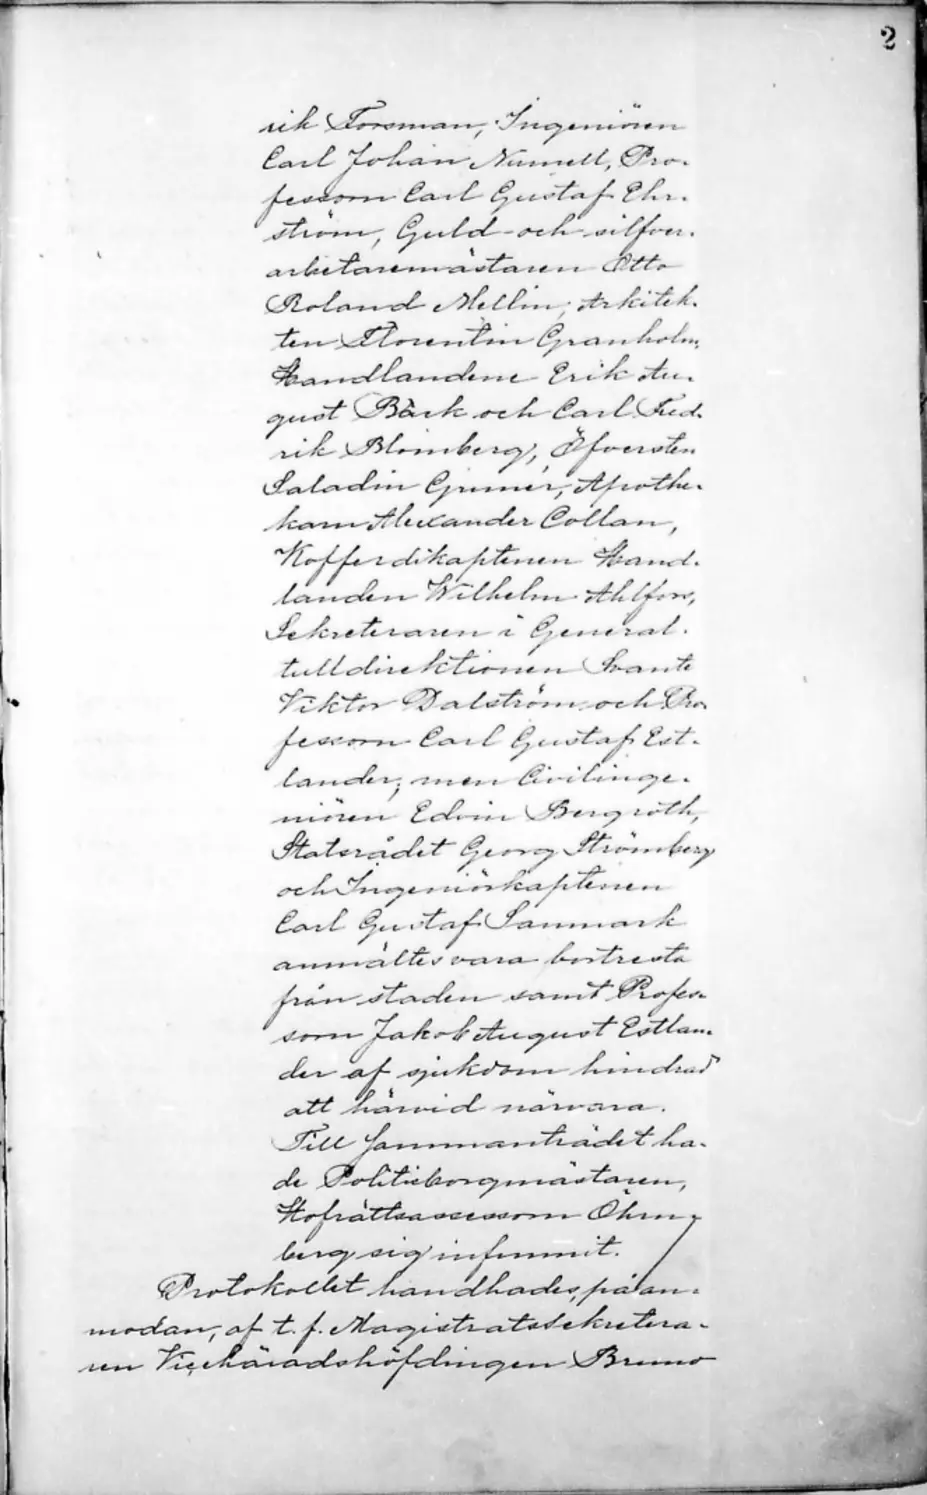 2
rik Forsman, Ingeniören
Carl Johan Nummell, Pro-
fessorn Carl Gustaf Ehr-
ström, Guld- och silfver-
arbetaremästaren Otto
Roland Mellin, Arkitek-
ten Florentin Granholm,
Handlandene Erik Au-
gust Bäck och Carl Fred-
rik Blomberg, Öfversten
Saladin Grunér, Apothe-
karn Alexander Collan,
Kofferdikaptenen Hand-
landen Wilhelm Ahlfors,
Sekreteraren i General-
tulldirektionen Svante
Viktor Dalström och Pro-
fessorn Carl Gustaf Est-
lander; men Civilinge-
niören Edvin Bergroth,
Statsrådet Georg Strömberg
och Ingeniörkaptenen
Carl Gustaf Sanmark
anmältes vara bortresta
från staden samt Profes-
sorn Jakob August Estlan-
der af sjukdom hindrad
att härvid närvara.
Till sammanträdet ha-
de Politieborgmästaren,
Hofrättsassessorn Öhrn-
berg sig infunnit.
Protokollet handhades, på an-
modan, af t. f. Magistratssekretera-
ren Vicehäradshöfdingen Bruno